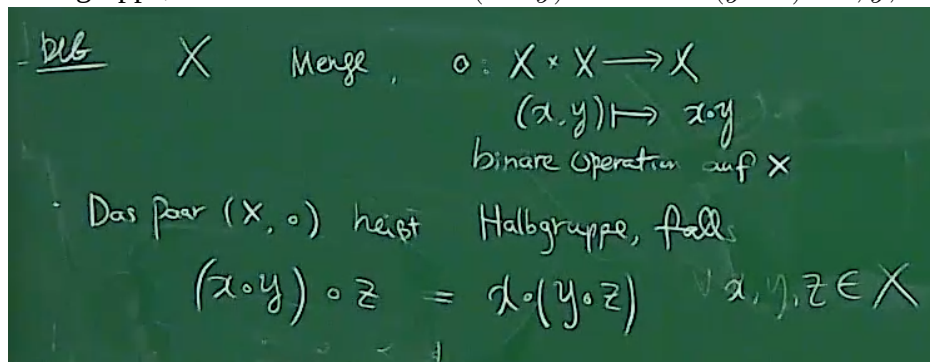 Def X Menge, ∘: X × X ⟶ X
(x,y) ⟼ x∘y
binare Operation auf X
· Das Paar (X, ∘) heißt Halbgruppe, falls
(x∘y)∘z = x∘(y∘z) ∀ x, y, z ∈ X